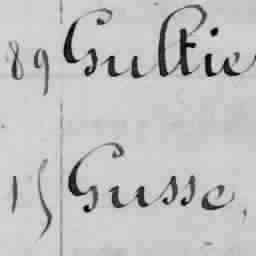 89 Gultie
15 Gusse,